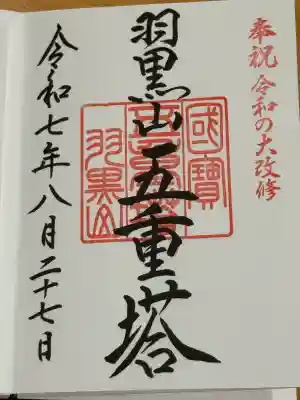 奉祝 令和の大改修
羽黒山五重塔
國寶
五重塔
羽黒山
令和七年八月二十七日